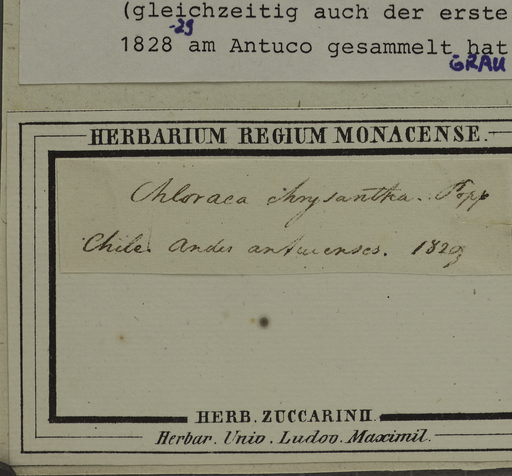 (gleichzeitig auch der erste
1828 -29 am Antuco gesammelt hat
GRAU
HERBARIUM REGIUM MONACENSE.
Chloraea chrysantha. Popp
Chile. Andes antucenses. 1829
HERB. ZUCCARINII.
Herbar. Univ. Ludov. Maximil.